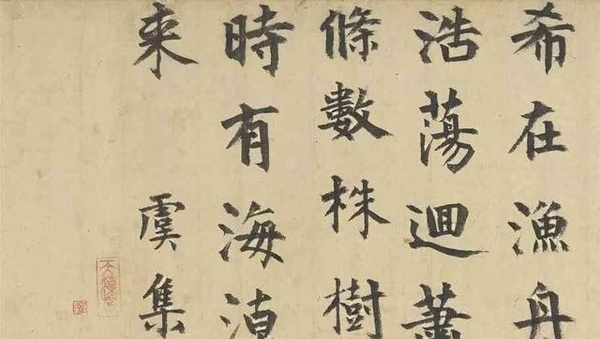 希在漁舟
浩蕩迴蕭
條數株樹
時有海漬
来 虞集